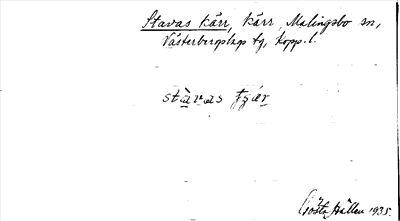 Stavas kärr, kärr, Malingsbo sn,
Västerbergslags tg, Kopp. l.
Gösta Hallen 1935.